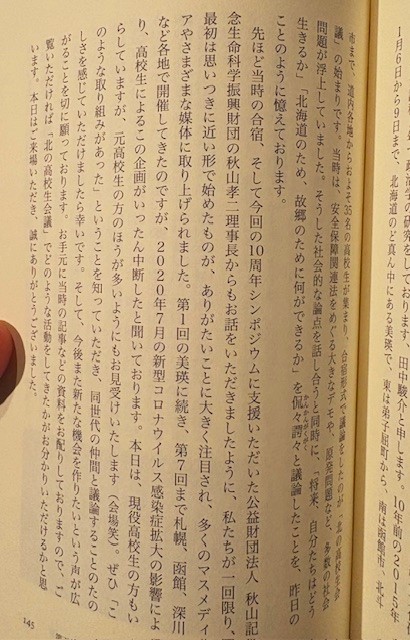 政治学の研究をしております、田中駿介と申します。10年前の2015年
1月6日から9日まで、北海道のど真ん中にある美瑛で、東は弟子屈町から、南は函館市、北斗
市まで、道内各地からおよそ35名の高校生が集まり、合宿形式で議論をしたのが「北の高校生会
議」の始まりです。当時は、安全保障関連法をめぐる大きなデモや、原発問題など、多数の社会
問題が浮上していました。そうした社会的な論点を話し合うと同時に、「将来、自分たちはどう
生きるか」「北海道のため、故郷のために何ができるか」を侃々諤々と議論したことを、昨日の
ことのように憶えております。
先ほど当時の合宿、そして今回の10周年シンポジウムに支援いただいた公益財団法人 秋山記
念生命科学振興財団の秋山孝二理事長からもお話をいただきましたように、私たちが一回限り、
最初は思いつきに近い形で始めたものが、ありがたいことに大きく注目され、多くのマスメディ
アやさまざまな媒体に取り上げられました。第1回の美瑛に続き、第7回まで札幌、函館、深川
など各地で開催してきたのですが、2020年7月の新型コロナウイルス感染症拡大の影響によ
り、高校生によるこの企画がいったん中断したと聞いております。本日は、現役高校生の方もい
らしていますが、元高校生の方のほうが多いようにもお見受けいたします(会場笑)。ぜひ「こ
のような取り組みがあった」ということを知っていただき、同世代の仲間と議論することのたの
しさを感じていただけましたら幸いです。そして、今後また新たな機会を作りたいという声が広
がることを切に願っております。お手元に当時の記事などの資料をお配りしておりますので、ご
覧いただければ「北の高校生会議」でどのような活動をしてきたかがお分かりいただけるかと思
います。本日はご来場いただき、誠にありがとうございました。
145